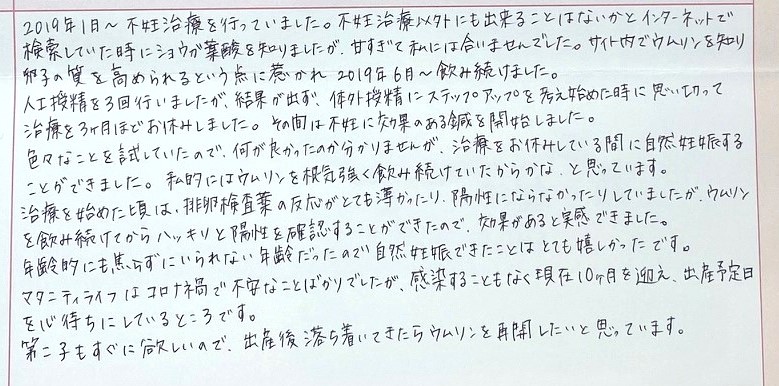 2019年1月〜 不妊治療を行っていました。不妊治療以外にも出来ることはないかとインターネットで
検索していた時にショウガ葉酸を知りましたが、甘すぎて私には合いませんでした。サイト内でウムリンを知り
卵子の質を高められるという点に惹かれ 2019年6月〜飲み続けました。
人工授精を3回行いましたが、結果が出ず、体外授精にステップアップを考え始めた時に思い切って
治療を3ヶ月ほどお休みしました。その間は不妊に効果のある鍼を開始しました。
色々なことを試していたので、何が良かったのか分かりませんが、治療をお休みしている間に自然妊娠する
ことができました。私的にはウムリンを根気強く飲み続けていたからかな、と思っています。
治療を始めた頃は、排卵検査薬の反応がとても薄かったり、陽性にならなかったりしていましたが、ウムリン
を飲み続けてからハッキリと陽性を確認することができたので、効果があると実感できました。
年齢的にも焦らずにいられない年齢だったので自然妊娠できたことはとても嬉しかったです。
マタニティライフはコロナ禍で不安なことばかりでしたが、感染することもなく現在10ヶ月を迎え、出産予定日
を心待ちにしているところです。
第二子もすぐに欲しいので、出産後落ち着いてきたらウムリンを再開したいと思っています。